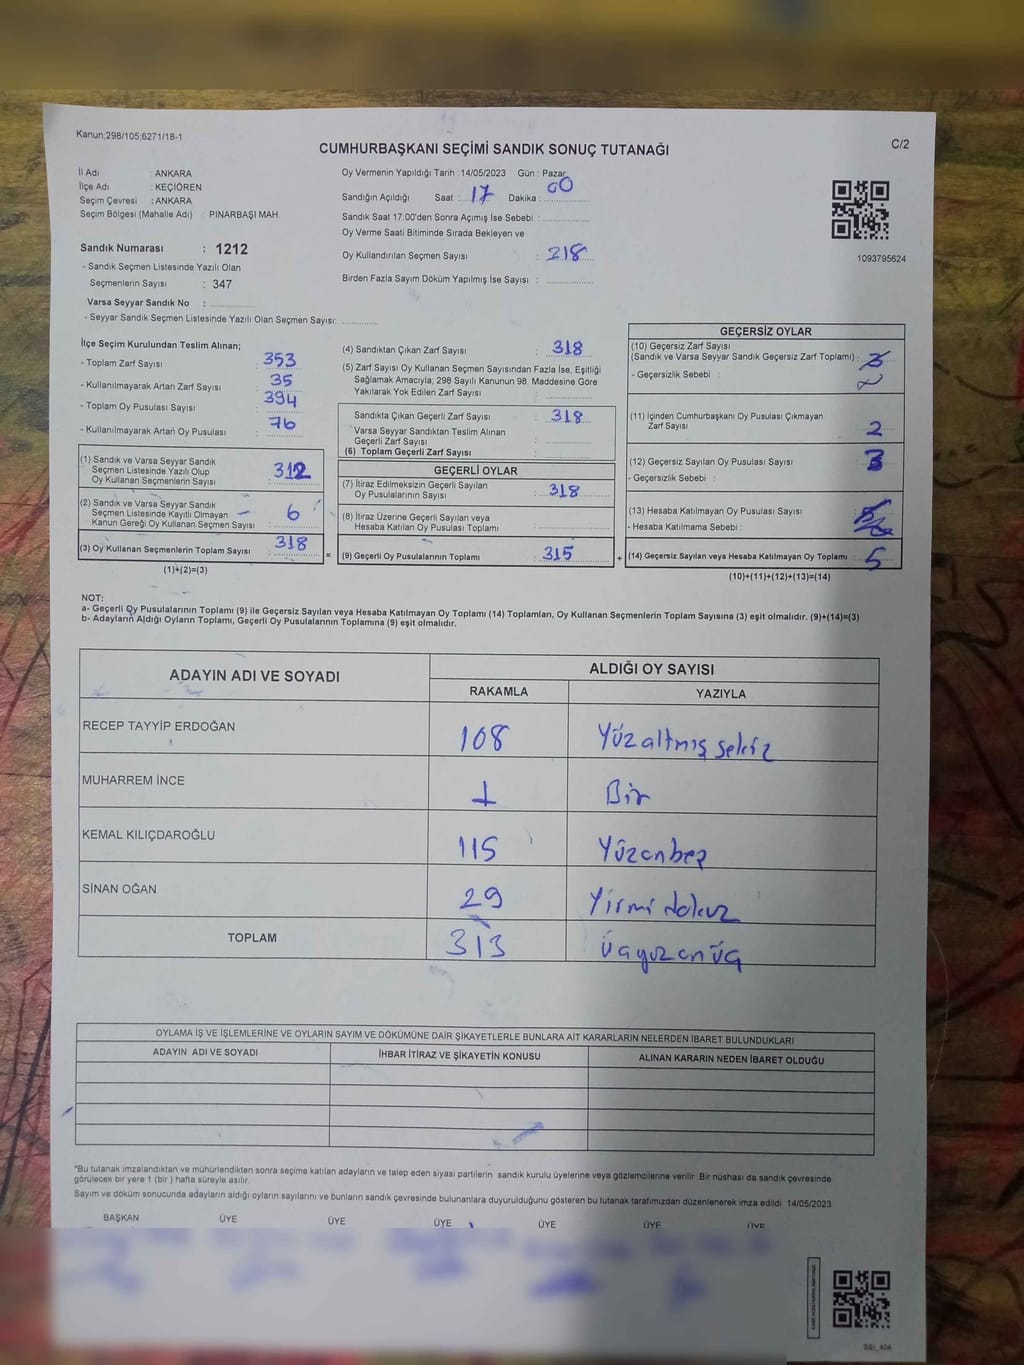 Kanun;298/105;6271/18-1
C/2
CUMHURBAŞKANI SEÇİMİ SANDIK SONUÇ TUTANAĞI
İl Adı : ANKARA
İlçe Adı : KEÇİÖREN
Seçim Çevresi : ANKARA
Seçim Bölgesi (Mahalle Adı) : PINARBAŞI MAH.
Sandık Numarası : 1212
- Sandık Seçmen Listesinde Yazılı Olan
Seçmenlerin Sayısı : 347
Varsa Seyyar Sandık No :
- Seyyar Sandık Seçmen Listesinde Yazılı Olan Seçmen Sayısı:
Oy Vermenin Yapıldığı Tarih : 14/05/2023 Gün : Pazar
Sandığın Açıldığı Saat : 17 Dakika : 00
Sandık Saat 17:00'den Sonra Açımış İse Sebebi :
Oy Verme Saati Bitiminde Sırada Bekleyen ve
Oy Kullandırılan Seçmen Sayısı : 218
Birden Fazla Sayım Döküm Yapılmış İse Sayısı :
1093795624
İlçe Seçim Kurulundan Teslim Alınan;
- Toplam Zarf Sayısı : 353
- Kullanılmayarak Artan Zarf Sayısı : 35
- Toplam Oy Pusulası Sayısı : 394
- Kullanılmayarak Artan Oy Pusulası : 76
(1) Sandık ve Varsa Seyyar Sandık
Seçmen Listesinde Yazılı Olup
Oy Kullanan Seçmenlerin Sayısı : 312
(2) Sandık ve Varsa Seyyar Sandık
Seçmen Listesinde Kayıtlı Olmayan
Kanun Gereği Oy Kullanan Seçmen Sayısı : 6
(3) Oy Kullanan Seçmenlerin Toplam Sayısı : 318
(1)+(2)=(3)
(4) Sandıktan Çıkan Zarf Sayısı : 318
(5) Zarf Sayısı Oy Kullanan Seçmen Sayısından Fazla İse, Eşitliği
Sağlamak Amacıyla; 298 Sayılı Kanunun 98. Maddesine Göre
Yakılarak Yok Edilen Zarf Sayısı :
Sandıkta Çıkan Geçerli Zarf Sayısı : 318
Varsa Seyyar Sandıktan Teslim Alınan
Geçerli Zarf Sayısı :
(6) Toplam Geçerli Zarf Sayısı :
GEÇERLİ OYLAR
(7) İtiraz Edilmeksizin Geçerli Sayılan
Oy Pusulalarının Sayısı : 318
(8) İtiraz Üzerine Geçerli Sayılan veya
Hesaba Katılan Oy Pusulası Toplamı :
= (9) Geçerli Oy Pusulalarının Toplamı : 315
GEÇERSİZ OYLAR
(10) Geçersiz Zarf Sayısı
(Sandık ve Varsa Seyyar Sandık Geçersiz Zarf Toplamı) :
- Geçersizlik Sebebi :
(11) İçinden Cumhurbaşkanı Oy Pusulası Çıkmayan
Zarf Sayısı : 2
(12) Geçersiz Sayılan Oy Pusulası Sayısı : 3
- Geçersizlik Sebebi :
(13) Hesaba Katılmayan Oy Pusulası Sayısı :
- Hesaba Katılmama Sebebi :
+ (14) Geçersiz Sayılan veya Hesaba Katılmayan Oy Toplamı : 5
(10)+(11)+(12)+(13)=(14)
NOT:
a- Geçerli Oy Pusulalarının Toplamı (9) ile Geçersiz Sayılan veya Hesaba Katılmayan Oy Toplamı (14) Toplamları, Oy Kullanan Seçmenlerin Toplam Sayısına (3) eşit olmalıdır. (9)+(14)=(3)
b- Adayların Aldığı Oyların Toplamı, Geçerli Oy Pusulalarının Toplamına (9) eşit olmalıdır.
ADAYIN ADI VE SOYADI
ALDIĞI OY SAYISI
RAKAMLA YAZIYLA
RECEP TAYYİP ERDOĞAN 108 Yüzaltmış sekiz
MUHARREM İNCE 1 Bir
KEMAL KILIÇDAROĞLU 115 Yüzonbeş
SİNAN OĞAN 29 Yirmi dokuz
TOPLAM 313 Üçyüzonüç
OYLAMA İŞ VE İŞLEMLERİNE VE OYLARIN SAYIM VE DÖKÜMÜNE DAİR ŞİKAYETLERLE BUNLARA AİT KARARLARIN NELERDEN İBARET BULUNDUKLARI
ADAYIN ADI VE SOYADI İHBAR İTİRAZ VE ŞİKAYETİN KONUSU ALINAN KARARIN NEDEN İBARET OLDUĞU
*Bu tutanak imzalandıktan ve mühürlendikten sonra seçime katılan adayların ve talep eden siyasi partilerin sandık kurulu üyelerine veya gözlemcilerine verilir. Bir nüshası da sandık çevresinde
görülecek bir yere 1 (bir ) hafta süreyle asılır.
Sayım ve döküm sonucunda adayların aldığı oyların sayılarını ve bunların sandık çevresinde bulunanlara duyurulduğunu gösteren bu tutanak tarafımızdan düzenlenerek imza edildi. 14/05/2023
BAŞKAN ÜYE ÜYE ÜYE ÜYE ÜYE ÜYE